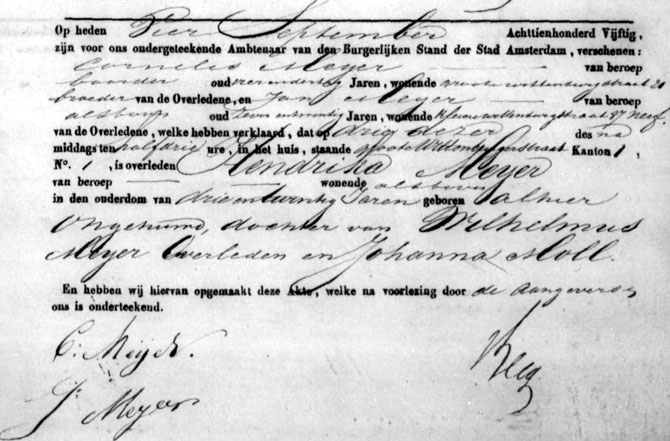 Op heden Vier September Achttienhonderd Vijftig,
zijn voor ons ondergeteekende Ambtenaar van den Burgerlijken Stand der Stad Amsterdam, verschenen:
Cornelis Meyer van beroep
oud Jaren, wonende groote wittenburgstraat
broeder van de Overledene, en Jan Meyer van beroep
alsboven oud zevenentwintig Jaren, wonende kleine wittenburgstraat 87 neef
van de Overledene, welke hebben verklaard, dat op drie dezer des na
middags ten halfdrie ure, in het huis, staande groote Wittenburgerstraat Kanton 1,
No. 1, is overleden Hendrika Meyer
van beroep wonende alsboven
in den ouderdom van drieentwintig Jaren geboren alhier
Ongehuwd, dochter van Wilhelmus
Meyer Overleden en Johanna Moll.
En hebben wij hiervan opgemaakt deze Akte, welke na voorlezing door de aangevers
ons is onderteekend.
C: Meyer.
J: Meyer